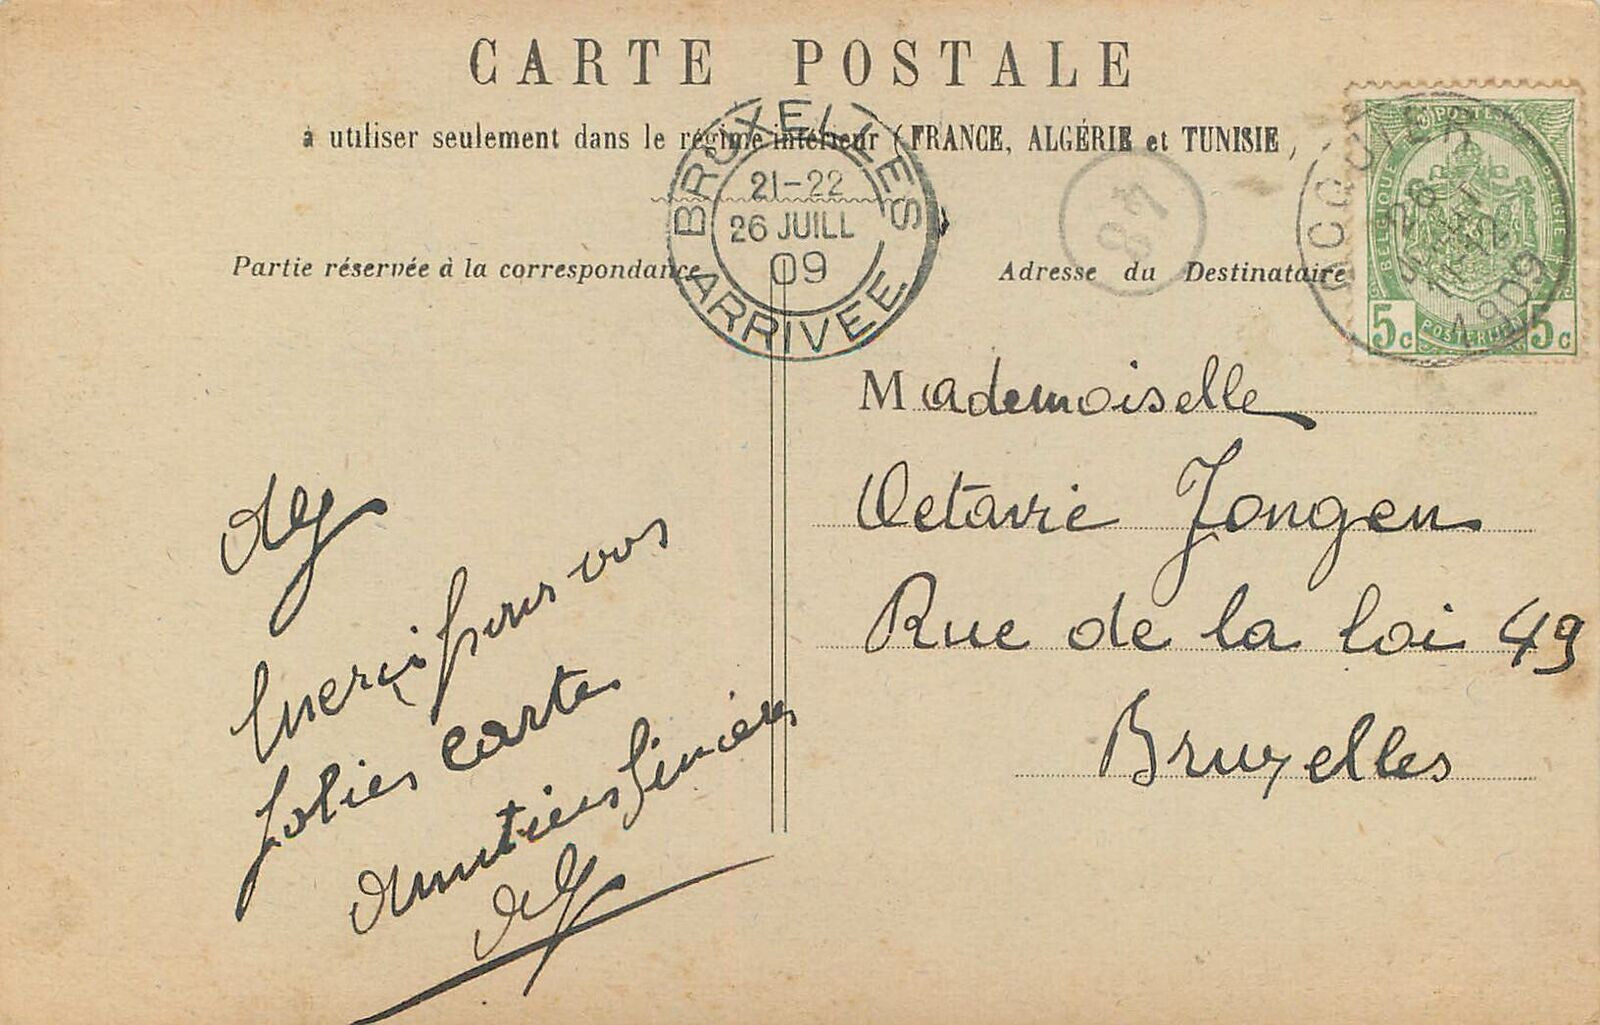 CARTE POSTALE
à utiliser seulement dans le régime intérieur (FRANCE, ALGÉRIE et TUNISIE,
Partie réservée à la correspondance
Adresse du Destinataire
BRUXELLES
21-22
26 JUILL
09
ARRIVEE
48
26
1909
POSTES
BELGIQUE
BELGIE
5c
POSTERIJEN
5c
Mademoiselle
Octavie Jongen
Rue de la loi 49
Bruxelles
merci pour vos
jolies cartes
Amitiés sincères